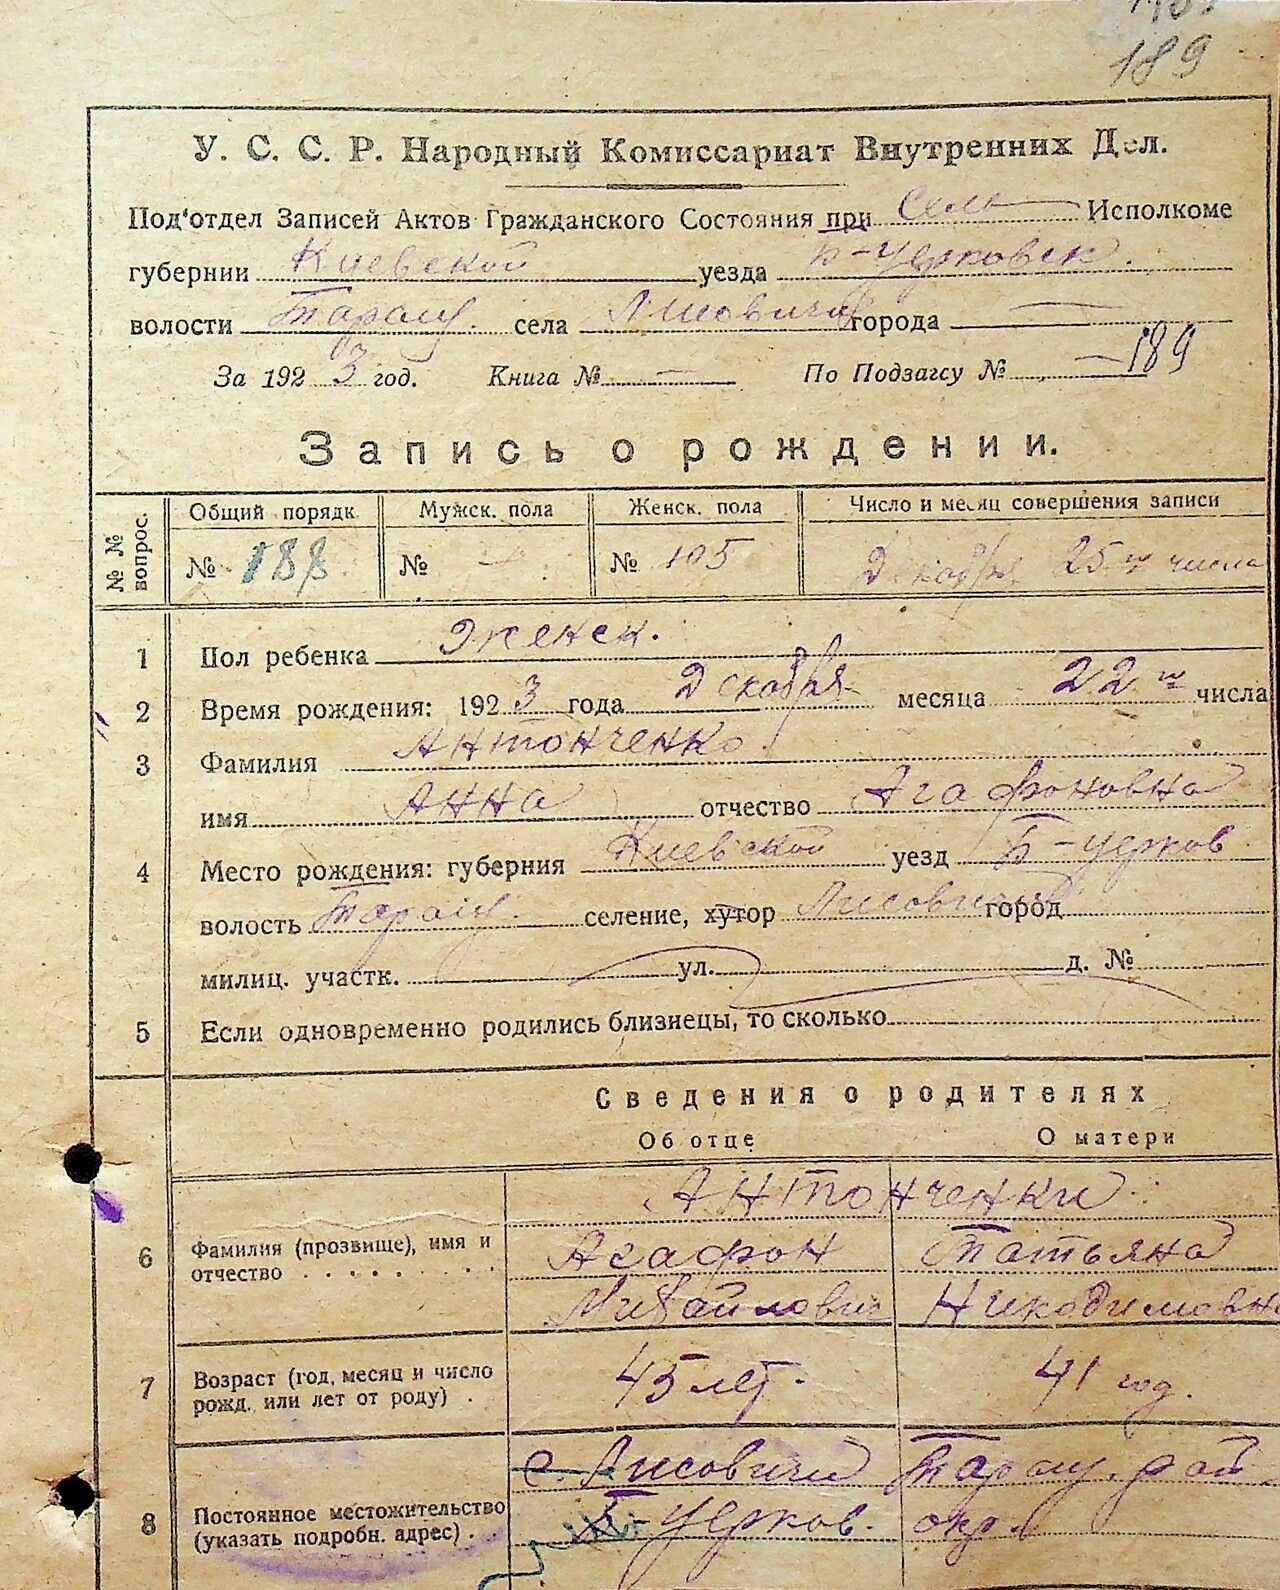 189
У. С. С. Р. Народный Комиссариат Внутренних Дел.
Под‘отдел Записей Актов Гражданского Состояния при Сель Исполкоме
губернии Киевской уезда Б-Церковск.
волости Таращ. села Лисовичи города —
За 1923 год. Книга № — По Подзагсу № —189
Запись о рождении.
№ № вопрос. Общий порядк Мужск. пола Женск. пола Число и месяц совершения записи
№ 188 № — № 105 Декабря 25го числа
1 Пол ребенка Женск.
2 Время рождения: 1923 года Декабря месяца 22го числа
3 Фамилия Антонченко
имя Анна отчество Агафоновна
4 Место рождения: губерния Киевской уезд Б-Церков
волость Таращ. селение, хутор Лисовичи город
милиц. участк. ул. д. №
5 Если одновременно родились близнецы, то сколько
Сведения о родителях
Об отце О матери
Антонченки
6 Фамилия (прозвище), имя и Агафон Татьяна
отчество . . . . . . . Михайлович Никодимовна
7 Возраст (год, месяц и число 45 лет. 41 год.
рожд. или лет от роду) .
с. Лисовичи Таращ. рай
8 Постоянное местожительство Б-Церков. окр.
(указать подробн. адрес) .